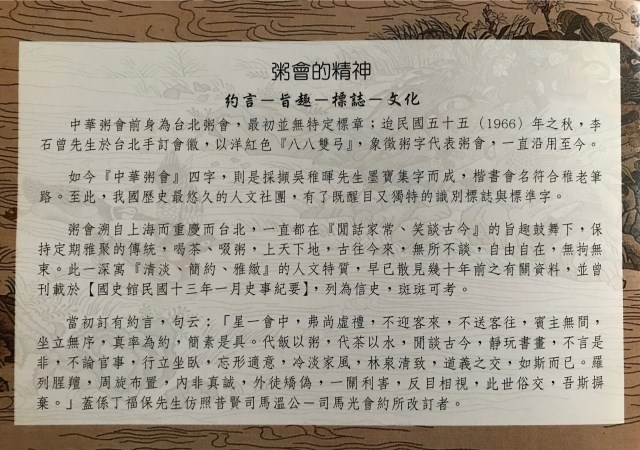 粥會的精神
約言－旨趣－標誌－文化
中華粥會前身為台北粥會，最初並無特定標章；迨民國五十五（1966）年之秋，李
石曾先生於台北手訂會徽，以洋紅色『八八雙弓』，象徵粥字代表粥會，一直沿用至今。
如今『中華粥會』四字，則是採擷吳稚暉先生墨寶集字而成，楷書會名符合稚老筆
路。至此，我國歷史最悠久的人文社團，有了既醒目又獨特的識別標誌與標準字。
粥會溯自上海而重慶而台北，一直都在『閒話家常、笑談古今』的旨趣鼓舞下，保
持定期雅聚的傳統，喝茶、啜粥，上天下地，古往今來，無所不談，自由自在，無拘無
束。此一深寓『清淡、簡約、雅緻』的人文特質，早已散見幾十年前之有關資料，並曾
刊載於【國史館民國十三年一月史事紀要】，列為信史，斑斑可考。
當初訂有約言，句云：「星一會中，弗尚虛禮，不迎客來，不送客往，賓主無間，
坐立無序，真率為約，簡素是具。代飯以粥，代茶以水，閒談古今，靜玩書畫，不言是
非，不論官事，行立坐臥，忘形適意，冷淡家風，林泉清致，道義之交，如斯而已。羅
列腥羶，周旋布置，內非真誠，外徒矯偽，一關利害，反目相視，此世俗交，吾斯摒
棄。」蓋係丁福保先生仿照昔賢司馬溫公－司馬光會約所改訂者。